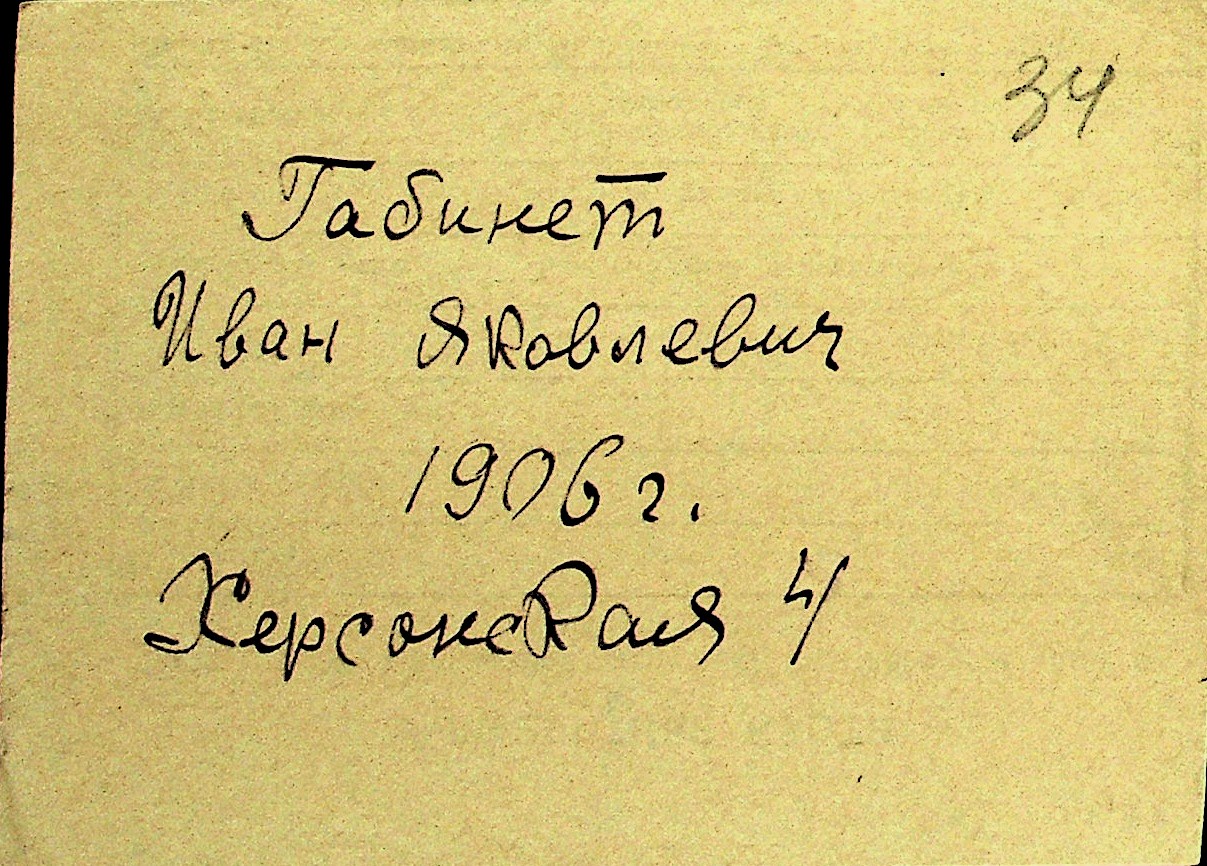 34
Габинет
Иван Яковлевич
1906 г.
Херсонская 4